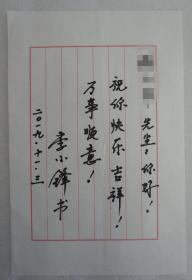 先生：你好！
祝你快乐吉祥！
万事顺意！
李小锋书
二〇一九.十一.三